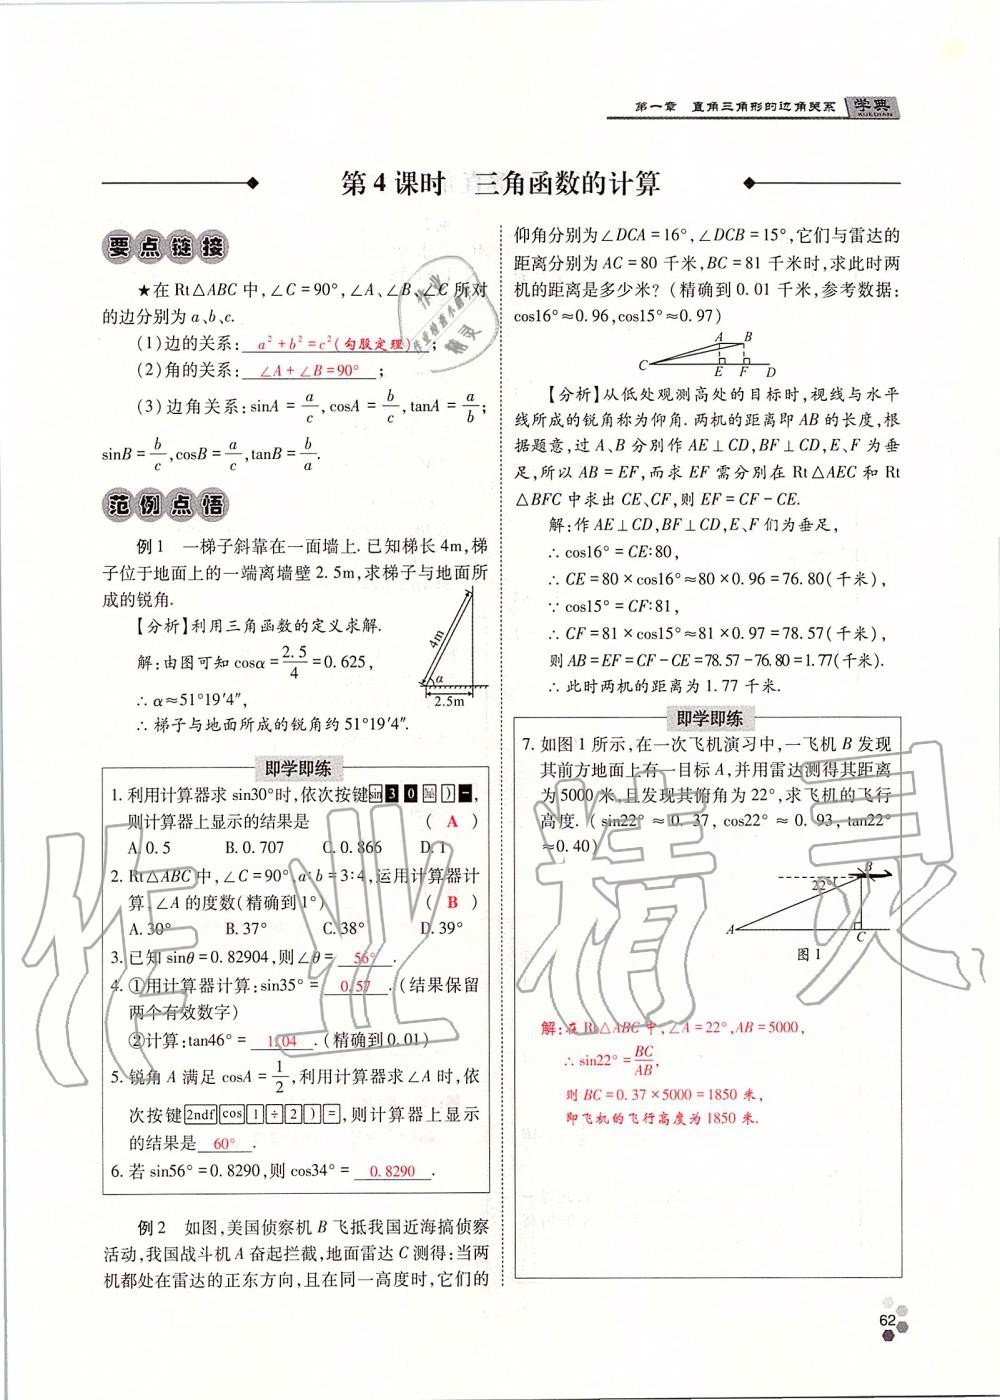 第一章　直角三角形的边角关系　学典
XUEDIAN
第 4 课时　三角函数的计算
要点链接
★在 Rt△ABC 中,∠C=90°,∠A、∠B、∠C 所对
的边分别为 a、b、c.
(1)边的关系: a²+b²=c²(勾股定理) ;
(2)角的关系: ∠A+∠B=90° ;
(3)边角关系:sinA=a/c,cosA=b/c,tanA=a/b;
sinB=b/c,cosB=a/c,tanB=b/a.
范例点悟
例 1　一梯子斜靠在一面墙上.已知梯长 4m,梯
子位于地面上的一端离墙壁 2.5m,求梯子与地面所
成的锐角.
【分析】利用三角函数的定义求解.
解:由图可知 cosα=2.5/4=0.625,
∴α≈51°19′4″.
∴梯子与地面所成的锐角约51°19′4″.
4m
α
2.5m
即学即练
1. 利用计算器求 sin30°时,依次按键 sin 3 0 ) =,
则计算器上显示的结果是　( A )
A. 0.5　B. 0.707　C. 0.866　D. 1
2. Rt△ABC 中,∠C=90°,a:b=3:4,运用计算器计
算,∠A 的度数(精确到1°)　( B )
A. 30°　B. 37°　C. 38°　D. 39°
3. 已知 sinθ=0.82904,则∠θ= 56° .
4. ①用计算器计算:sin35°= 0.57 .(结果保留
两个有效数字)
②计算:tan46°= 1.04 .(精确到 0.01)
5. 锐角 A 满足 cosA=1/2,利用计算器求∠A 时,依
次按键 2ndf cos 1 ÷ 2 ) =,则计算器上显示
的结果是 60° .
6. 若 sin56°=0.8290,则 cos34°= 0.8290 .
例 2　如图,美国侦察机 B 飞抵我国近海搞侦察
活动,我国战斗机 A 奋起拦截,地面雷达 C 测得:当两
机都处在雷达的正东方向,且在同一高度时,它们的
仰角分别为∠DCA=16°,∠DCB=15°,它们与雷达的
距离分别为 AC=80 千米,BC=81 千米时,求此时两
机的距离是多少米?(精确到 0.01 千米,参考数据:
cos16°≈0.96,cos15°≈0.97)
A B
C E F D
【分析】从低处观测高处的目标时,视线与水平
线所成的锐角称为仰角.两机的距离即 AB 的长度,根
据题意,过 A、B 分别作 AE⊥CD,BF⊥CD,E、F 为垂
足,所以 AB=EF,而求 EF 需分别在 Rt△AEC 和 Rt
△BFC 中求出 CE、CF,则 EF=CF-CE.
解:作 AE⊥CD,BF⊥CD,E、F 们为垂足,
∴cos16°=CE:80,
∴CE=80×cos16°≈80×0.96=76.80(千米),
∵cos15°=CF:81,
∴CF=81×cos15°≈81×0.97=78.57(千米),
则 AB=EF=CF-CE=78.57-76.80=1.77(千米).
∴此时两机的距离为 1.77 千米.
即学即练
7. 如图 1 所示,在一次飞机演习中,一飞机 B 发现
其前方地面上有一目标 A,并用雷达测得其距离
为 5000 米,且发现其俯角为 22°,求飞机的飞行
高度.(sin22°≈0.37,cos22°≈0.93,tan22°
≈0.40)
B
22°
A C
图 1
解:在 Rt△ABC 中,∠A=22°,AB=5000,
∴sin22°=BC/AB,
则 BC=0.37×5000=1850 米,
即飞机的飞行高度为 1850 米.
62
作业精灵